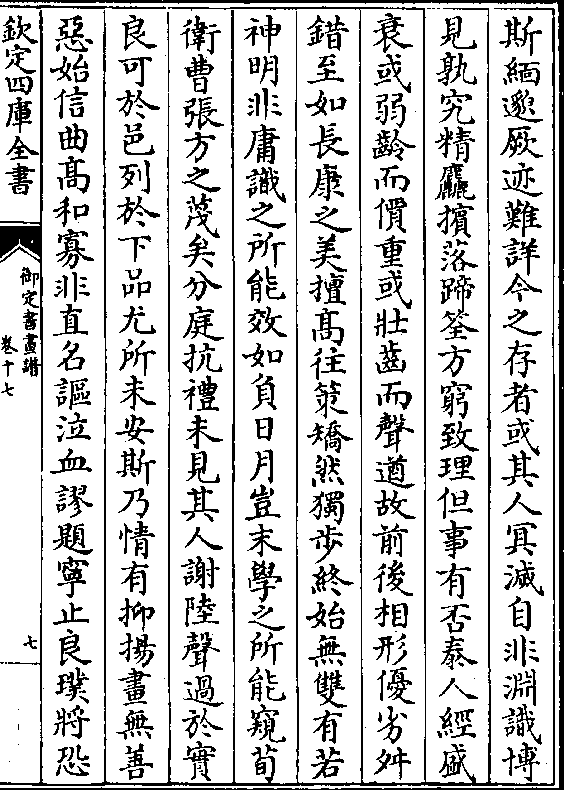 斯緬邈厥迹難詳今之存者或其人冥滅自非淵識博
見孰究精麤擯落蹄筌方窮致理但事有否泰人經盛
衰或弱齡而價重或壯齒而聲遒故前後相形優劣舛
錯至如長康之美擅髙往䇿矯然獨步終始無雙有若
神明非庸識之所能效如負日月豈末學之所能窺荀
衛曹張方之蔑矣分庭抗禮未見其人謝陸聲過於實
良可於邑列於下品尤所未安斯乃情有抑揚畫無善
惡始信曲髙和寡非直名謳泣血謬題寧止良璞將恐
欽定四庫全書
御定書畫譜
卷十七
七